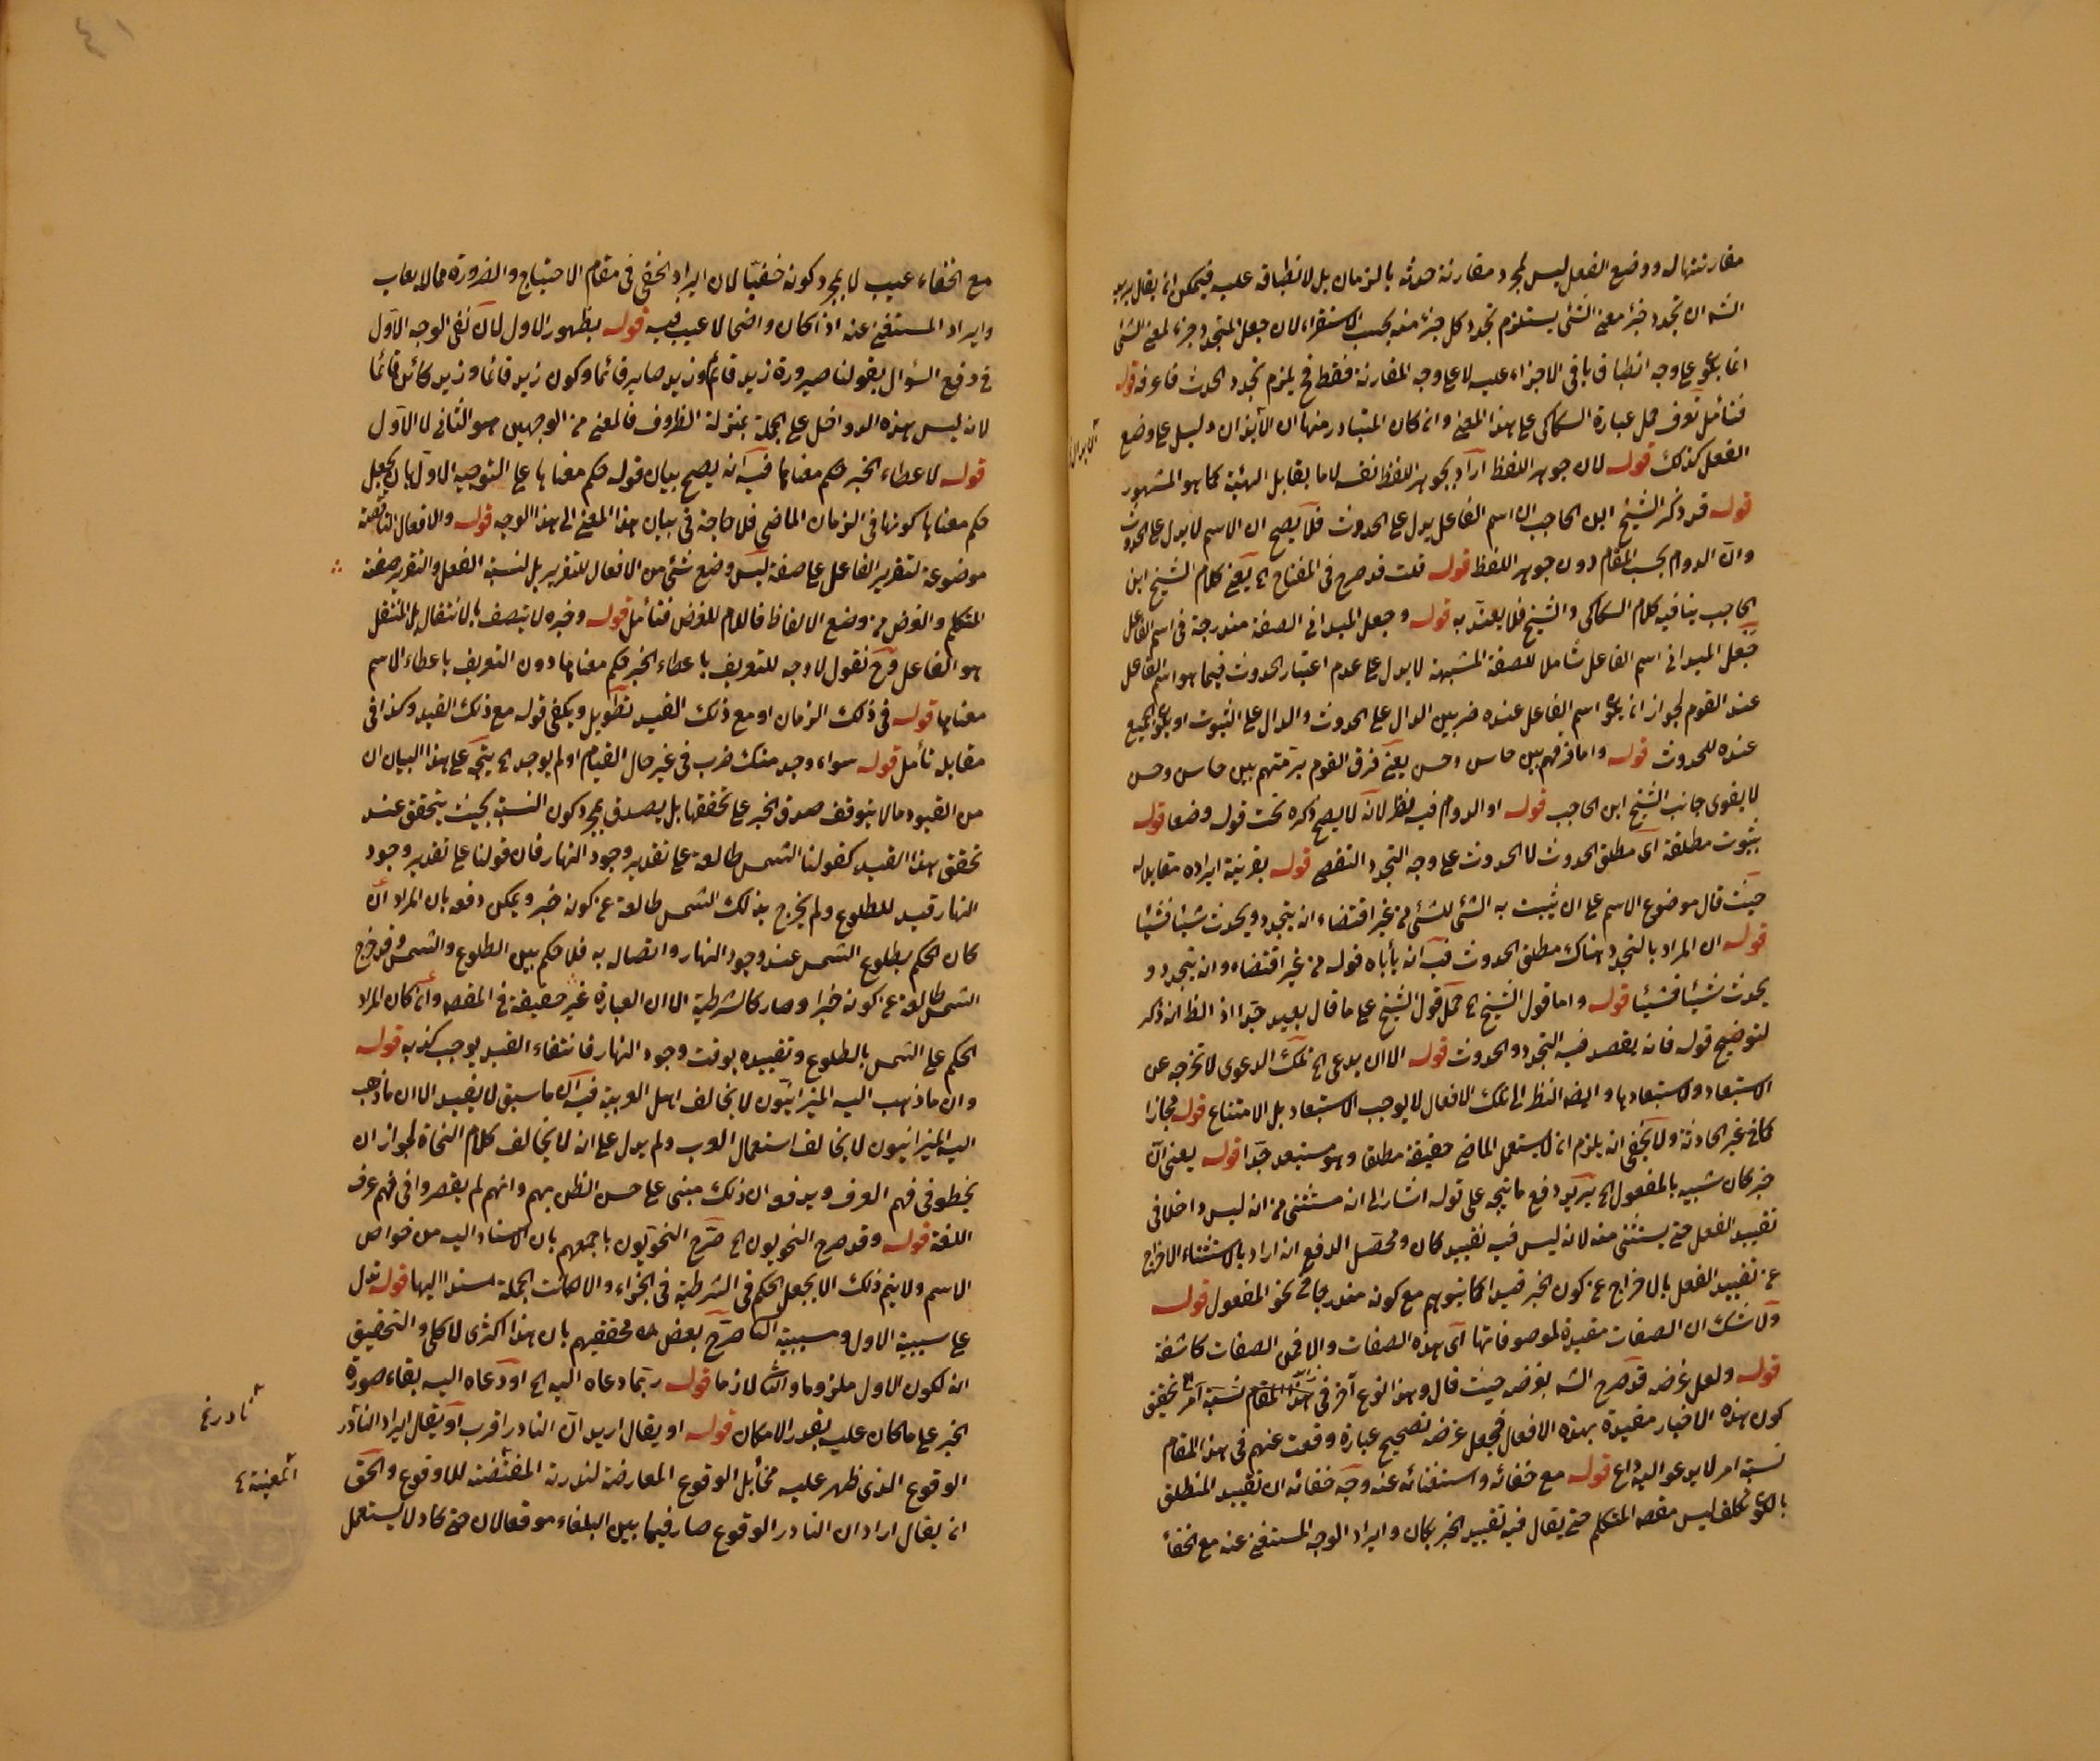 مقارنتها له ووضع الفعل ليس لمجرد مقارنة حدثه بالزمان بل لانطباقه عليه فيمكن ان يقال يريد
الشه ان تجدد جزء معنى الشئ يستلزم تجدد كل جزء منه بحسب الاستقراء لان جعل المتجدد جزء لمعنى الشئ
انما يكون على وجه انطباق باقى الاجزاء عليه لا على وجه المقارنة فقط فح يلزم تجدد الحدث فاعرفه قوله
فتأمل تعرف حمل عبارة السكاكى على هذا المعنى وان كان المتبادر منها ان دليل على وضع
الفعل كذلك قوله لان جوهر اللفظ اراد بجوهر اللفظ نفسه لا ما يقابل الهيئة كما هو المشهور
قوله قد ذكر الشيخ ابن الحاجب ان اسم الفاعل يدل على الحدوث فلا يصح ان الاسم لا يدل على الحدوث
وان الدوام بحسب المقام دون جوهر اللفظ قوله قلت قد صرح فى المفتاح الخ يعنى كلام الشيخ ابن
الحاجب ينافيه كلام السكاكى والشيخ فلا يعتد به قوله وجعل الميدانى الصفة مندرجة فى اسم الفاعل
جعل الميدانى اسم الفاعل شاملا للصفة المشبهة لا يدل على عدم اعتبار الحدوث فيما هو اسم الفاعل
عند القوم لجواز ان يكون اسم الفاعل عنده ضربين الدال على الحدوث والدال على الثبوت او يكون الجميع
عنده للحدوث قوله واما فرقهم بين حاسن وحسن يعنى فرق القوم برمتهم بين حاسن وحسن
لا يقوى جانب الشيخ ابن الحاجب قوله او الدوام فيه نظر لانه لا يصح ذكره تحت قوله وضعا قوله
بثبوت مطلقة اى مطلق الحدوث لا الحدوث على وجه التجدد والتقضى قوله بقرينة ايراده مقابلا له
حيث قال موضوع الاسم على ان يثبت به الشئ للشئ من غير اقتضاء انه يتجدد ويحدث شيئا فشيئا
قوله ان المراد بالتجدد هناك مطلق الحدوث فيه انه يأباه قوله من غير اقتضاء وان يتجدد و
يحدث شيئا فشيئا قوله واما قول الشيخ الخ حمل قول الشيخ على ما قال بعيد جدا اذ الظ انه ذكر
لتوضيح قوله فانه يقصد فيه التجدد والحدوث قوله الا ان يدعى الخ تلك الدعوى لا تخرجه عن
الاستبعاد والاستبعاد بها وايضا النظر الى تلك الافعال لا يوجب الاستبعاد بل الامتناع قوله مجازا
كما فى غير الحادثة ولا يخفى انه يلزم ان لا يستعمل الماضى حقيقة مطلقا وهو مستبعد جدا قوله يعنى ان
خبر كان شبيه بالمفعول الخ يريد دفع ما يتجه على قوله اشار الى انه مستثنى من انه ليس داخلا فى
تقييد الفعل حتى يستثنى منه لانه ليس فيه تقييد كان ومحصل الدفع انه اراد بالاستثناء الاخراج
عن تقييد الفعل بالاخراج عن كون الخبر قيدا كما يتوهم مع كونه مندرجا فى نحو المفعول قوله
ولا شك ان الصفات مقيدة لموصوفاتها اى هذه الصفات والا فمن الصفات كاشفة
قوله ولعل غرضه قد صرح الشه بغرضه حيث قال وهذا النوع آخر فى هذا المقام نسبة امر تحقيق
كون هذه الاخبار مقيدة بهذه الافعال فجعل غرضه تصحيح عبارة وقعت عنهم فى هذا المقام
نسبة امر لا يدعو اليه داع قوله مع خفائه واستغنائه عنه وجه خفائه ان تقييد المنطلق
بالكون تكلف ليس مقصد المتكلم حتى يقال فيه تقييد الخبر بكان وايراد الوجه المستغنى عنه مع الخفاء
٤١
مع الخفاء عيب لا بمجرد كونه خفيا لان ايراد الخفى فى مقام الاحتياج والضرورة مما لا يعاب
وايراد المستغنى عنه اذا كان واضحا لا عيب فيه قوله بظهور الاول لان نفى الوجه الاول
فى دفع السؤال بقولنا صيرورة زيد قائم وزيد صاير قائما وكون زيد قائما وزيد كائن قائما
لانه ليس هذه الدواخل على الجملة بمنزلة الظروف فالمعنى من الوجهين هو الثانى لا الاول
قوله لاعطاء الخبر حكم معناها فيه انه يصح بيان قوله حكم معناها على التوجيه الاول بان يجعل
حكم معناها كونها فى الزمان الماضى فلا حاجة فى بيان هذا المعنى الى هذا الوجه قوله والافعال الناقصة
موضوعة لتقرير الفاعل على صفة ليس وضع شئ من الافعال للتقرير بل لنسبة الفعل والتقرير صفة
المتكلم والغرض من وضع الالفاظ فاللام للغرض فتأمل قوله وخبره لا يتصف بالانتقال بل المنتقل
هو الفاعل وح نقول لا وجه للتعريف باعطاء الخبر حكم معناها دون التعريف باعطاء الاسم
معناها قوله فى ذلك الزمان او مع ذلك القيد تطويل ويكفى قوله مع ذلك القيد وكذا فى
مقابله تأمل قوله سواء وجد منك ضرب فى غير حال القيام او لم يوجد الخ يتجه على هذا البيان ان
من القيود ما لا يتوقف صدق الخبر على تحققها بل يصدق بمجرد كون النسبة بحيث يتحقق عند
تحقق هذا القيد كقولنا الشمس طالعة على تقدير وجود النهار فان قولنا على تقدير وجود
النهار قيد للطلوع ولم يخرج بذلك الشمس طالعة عن كونه خبر ويمكن دفعه بان المراد ان
كان الحكم بطلوع الشمس عند وجود النهار واتصاله به فلا حكم بين الطلوع والشمس وقد خرج
الشمس طالعة عن كونه خبرا وصار كالشرطية الا ان العبارة غير حقيقة فى المقصد وان كان المراد
الحكم على الشمس بالطلوع وتقييده بوقت وجود النهار فانتفاء القيد يوجب كذبه قوله
وان ما ذهب اليه الميزانيون لا يخالف اهل العربية فيه ان ما سبق لا يفيد الا ان ما ذهب
اليه الميزانيون لا يخالف استعمال العرب ولم يدل على انه لا يخالف كلام النحاة لجواز ان
يخطو فى فهم العرف ويدفعه ان ذلك مبنى على حسن الظن بهم وانهم لم يقصروا فى فهم عرف
اللغة قوله وقد صرح النحويون الخ صرح النحويون باجمعهم بان الاسناد اليه من خواص
الاسم ولا يتم ذلك الا بجعل الحكم فى الشرطية فى الجزاء والا لكانت الجملة مسندا اليها قوله تدل
على سببية الاول ومسببية الثا صرح بعض محققيهم بان هذا اكثرى لا كلى والتحقيق
انه لكون الاول ملزوما والثا لازما قوله ربما دعاه اليه الخ او دعاه اليه بقاء صورة
الخبر على ما كان عليه بقدر الامكان قوله او يقال اريد ان النادر اقرب او يقال ايراد النادر
الوقوع الذى ظهر عليه مخايل الوقوع المعارضة لندرته المقتضية للاوقوع والحق
ان يقال اراد ان النادر الوقوع صار فيما بين البلغاء موقعا لان حتى كاد لا يستعمل